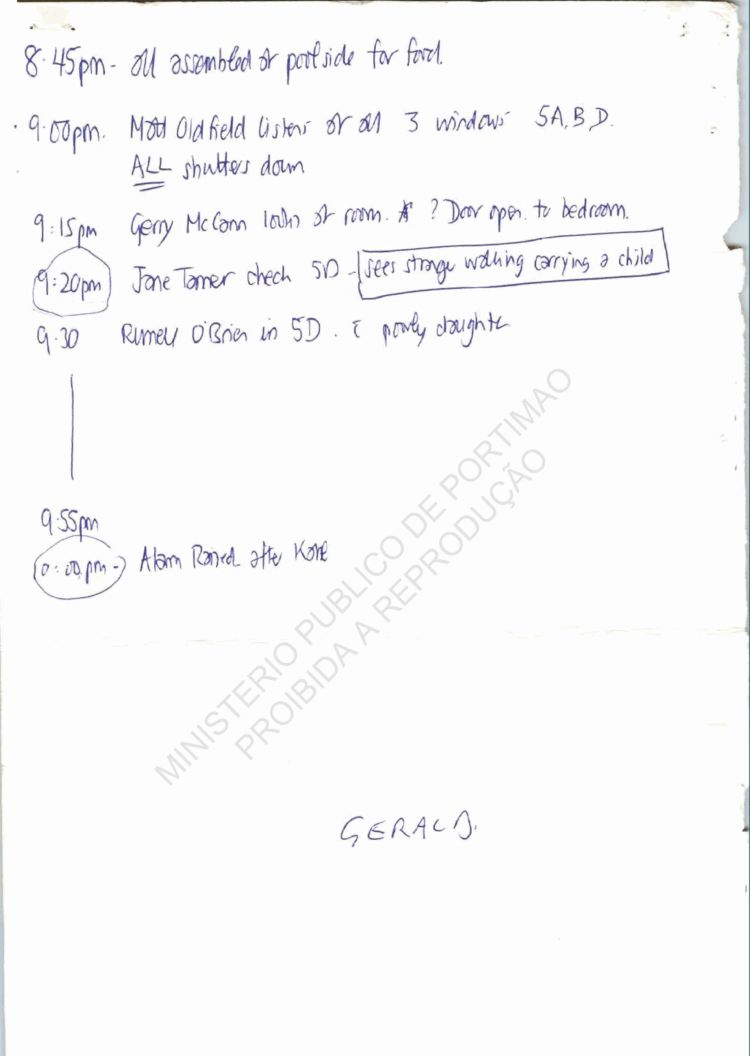 8.45pm - all assembled at poolside for food.
9.00pm. Matt Oldfield listens at all 3 windows 5A, B, D.
ALL shutters down
9:15pm Gerry McCann looks at room. ? Door open to bedroom.
9:20pm Jane Tanner check 5D - sees stranger walking carrying a child
9.30 Russell O'Brien in 5D. poorly daughter
9.55pm
10:00pm - Alarm Raised after Kate
MINISTERIO PUBLICO DE PORTIMAO
PROIBIDA A REPRODUÇÃO
GERALD.